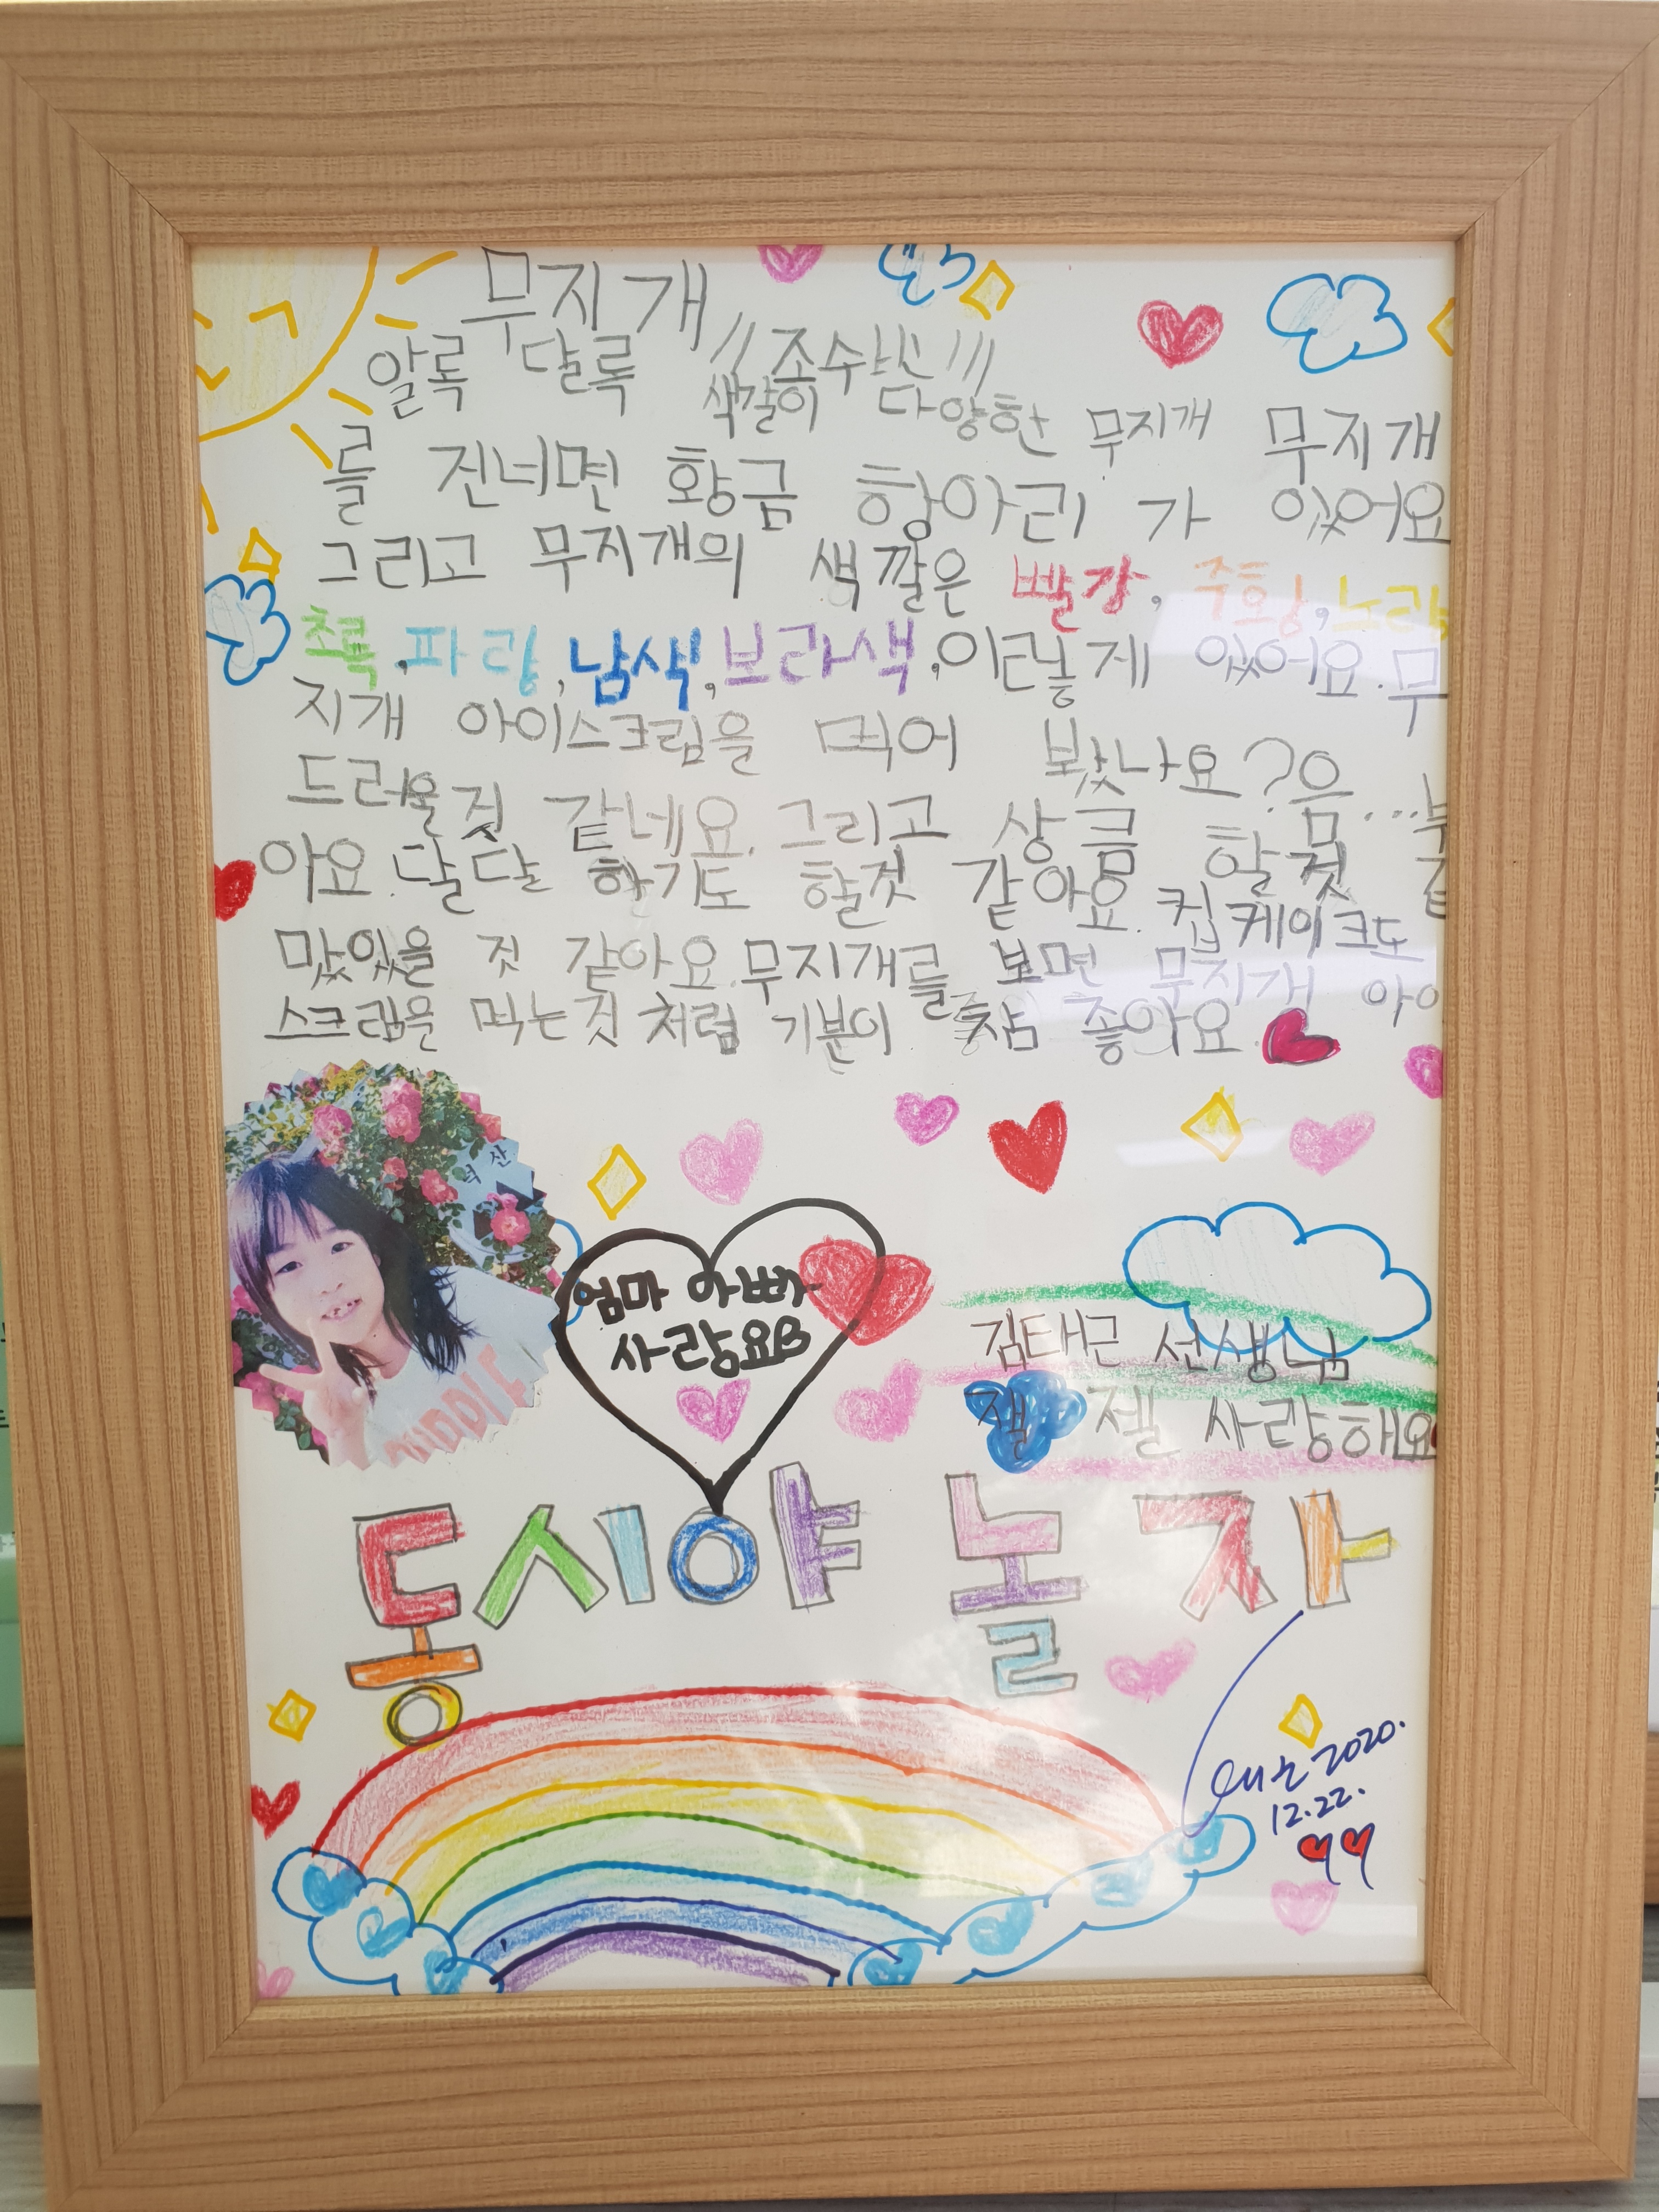 무지개
//조수빈///
알록 달록 색갈이 다양한 무지개 무지개
를 건너면 황금 항아리 가 있어요
그리고 무지개의 색깔은 빨강, 주황, 노랑
초록, 파랑, 남색, 보라색, 이렇게 있어요. 무
지개 아이스크림을 먹어 봤나요? 음... 부
드러울것 같네요. 그리고 상큼 할것 같
아요. 달달 하기도 할것 같아요. 컵케이크도
맜있을 것 같아요. 무지개를 보면 무지개 아이
스크림을 먹는것 처럼 기분이 참 좋아요.
엄마 아빠
사랑요
김태근 선생님
젤 젤 사랑해요
동시야 놀자
2020.
12.22.